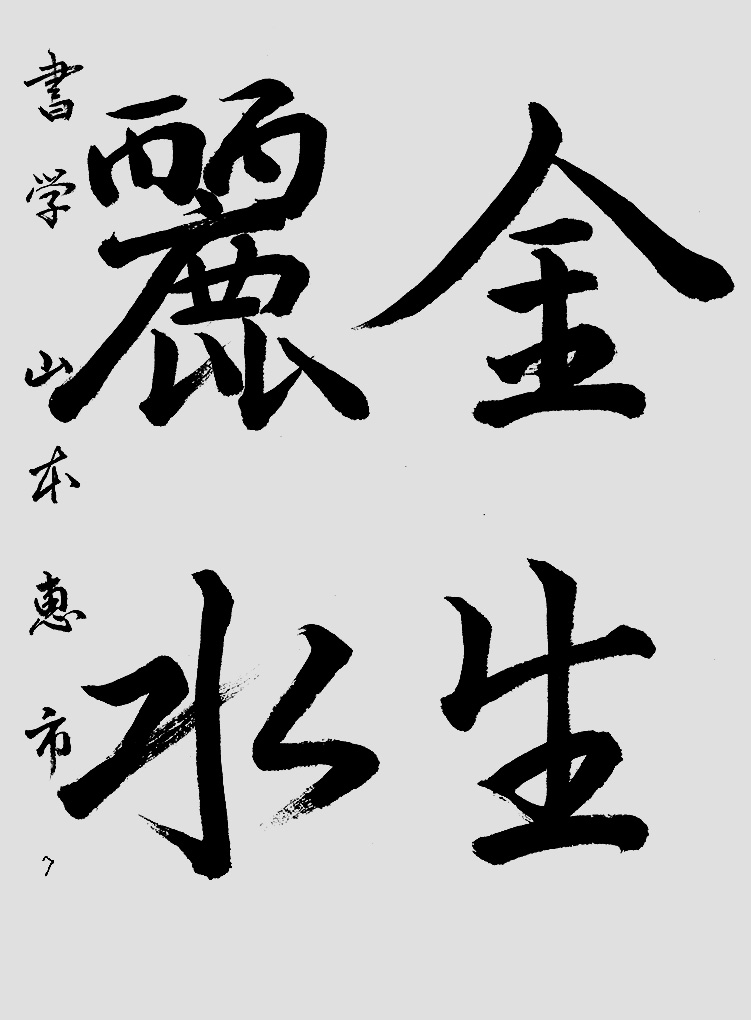 金生
麗水
書学 山本恵市